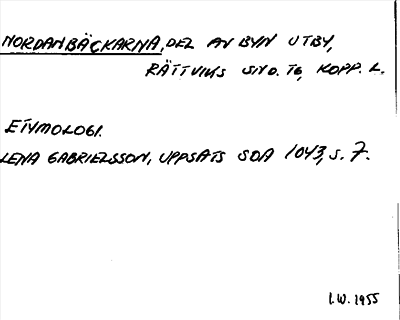 NORDANBÄCKARNA, DEL AV BYN UTBY,
RÄTTVIKS SN O. TG, KOPP. L.
ETYMOLOGI.
LENA GABRIELSSON, UPPSATS SOA 1043, S. 7.
I.W. 1955